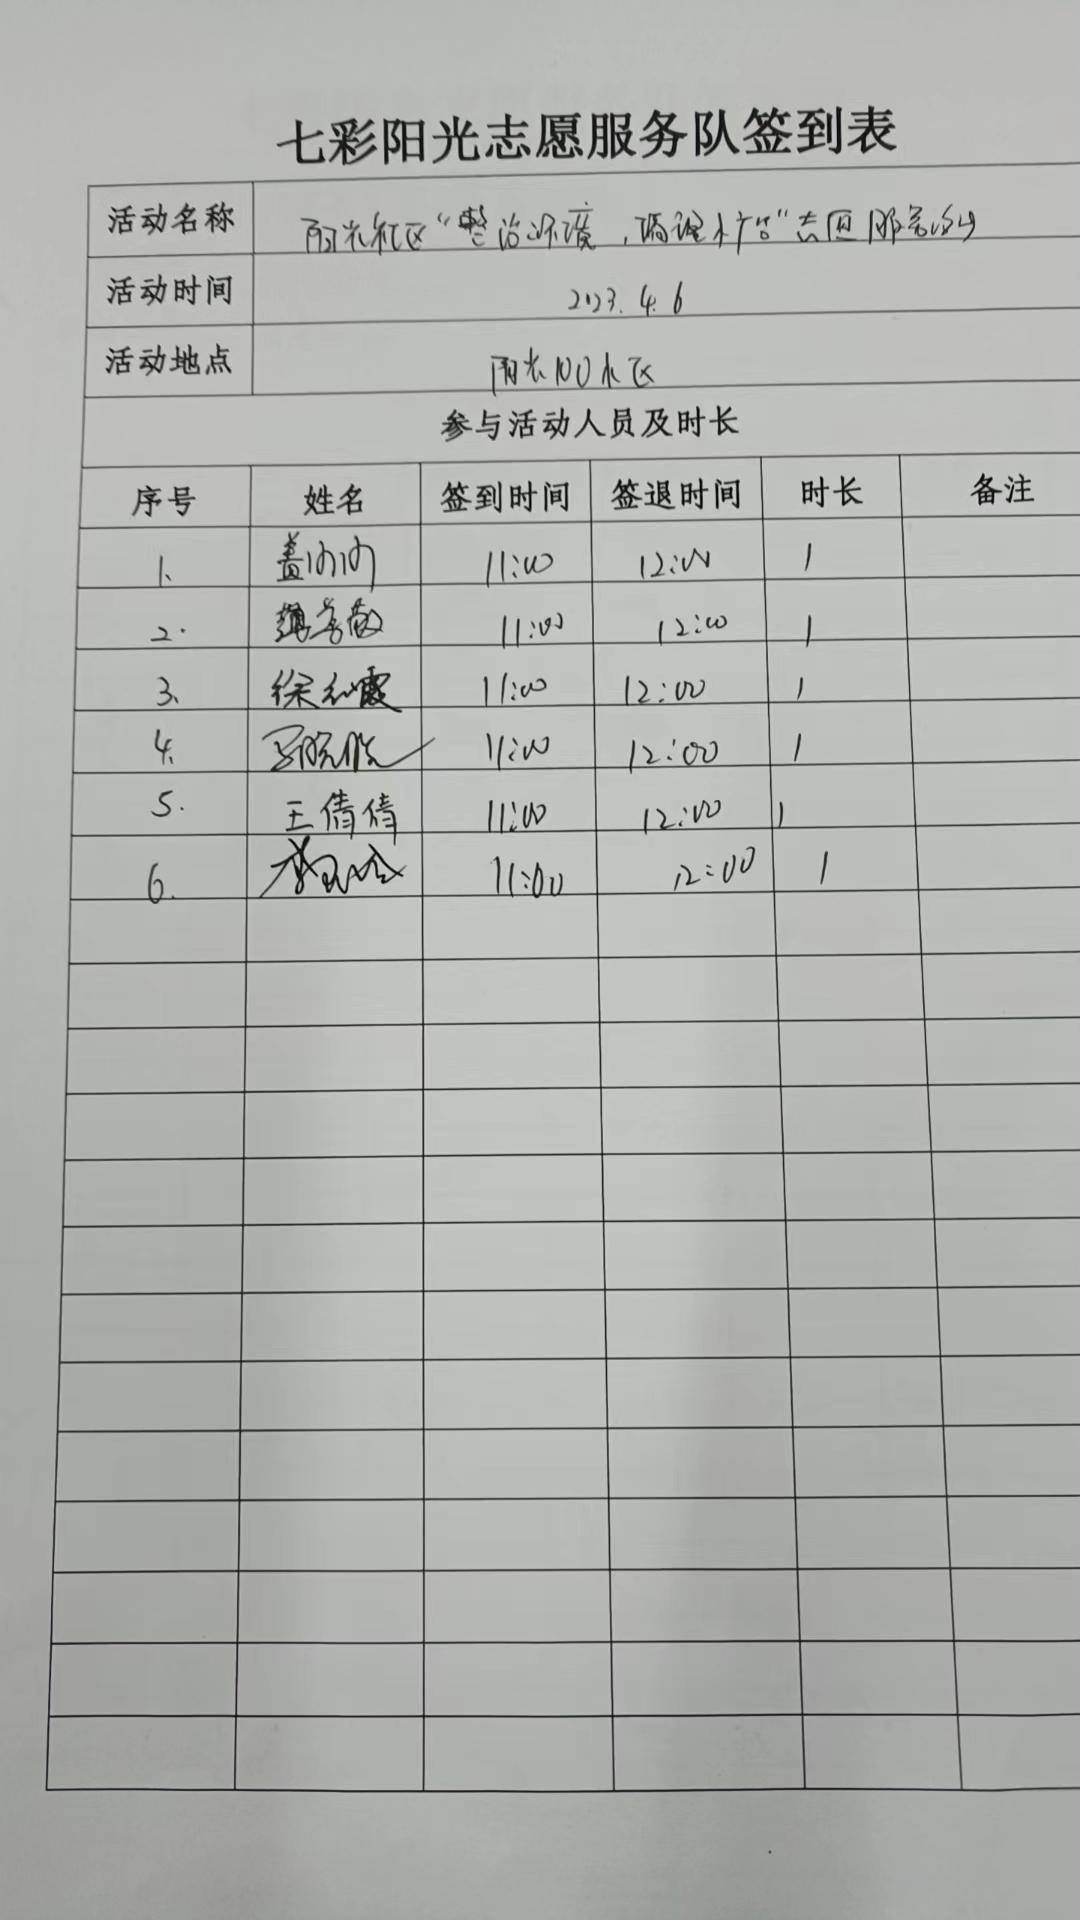 七彩阳光志愿服务队签到表
活动名称 阳光社区“整治环境,清理小广告”志愿服务活动
活动时间 2023.4.6
活动地点 阳光100小区
参与活动人员及时长
序号 姓名 签到时间 签退时间 时长 备注
1、 盖 11:00 12:00 1
2. 11:00 12:00 1
3、 徐 霞 11:00 12:00 1
4. 11:00 12:00 1
5. 王倩倩 11:00 12:00 1
6. 11:00 12:00 1